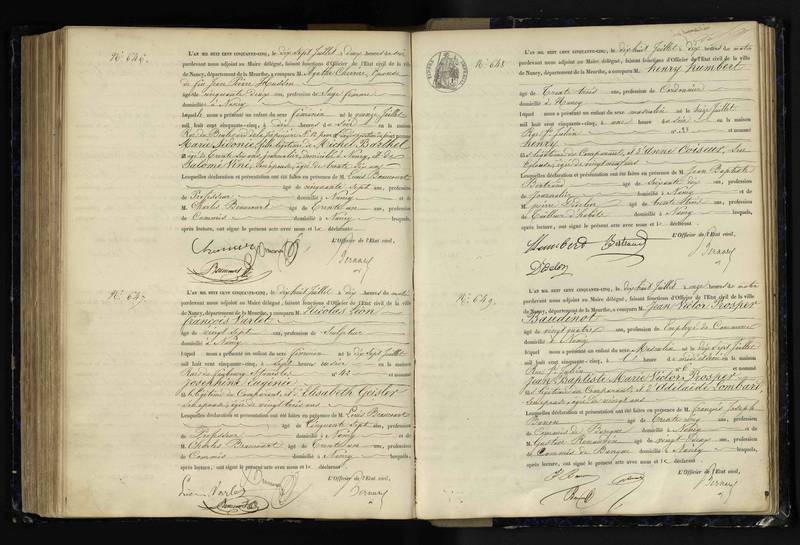 N° 646.
L'AN MIL HUIT CENT CINQUANTE-CINQ, le dix sept Juillet à deux heures du soir
pardevant nous adjoint au Maire délégué, faisant fonctions d'Officier de l'Etat civil de la ville
de Nancy, département de la Meurthe, a comparu M. Agathe
de feu Jean Pierre Husson
âgé de cinquante deux ans, profession de Sage femme
domicilié à Nancy
lequel nous a présenté un enfant du sexe féminin né le quinze Juillet
mil huit cent cinquante-cinq, à dix heures du soir en la maison
Rue du N° 12
Marie Sidonie fille légitime de Michel Barthel
âgé de trente six ans, journalier, domicilié à Nancy, et de
Salomé son épouse, âgée de trente six ans
Lesquelles déclaration et présentation ont été faites en présence de M. Louis Beaucourt
âgé de cinquante sept ans, profession
de Professeur domicilié à Nancy et de
M. Charles Beaucourt âgé de trente un ans, profession
de Commis domicilié à Nancy lesquels,
après lecture, ont signé le présent acte avec nous et le déclarant
L'Officier de l'Etat civil,
Bernard
N° 647.
L'AN MIL HUIT CENT CINQUANTE-CINQ, le dix huit Juillet à dix heures du matin
pardevant nous adjoint au Maire délégué, faisant fonctions d'Officier de l'Etat civil de la ville
de Nancy, département de la Meurthe, a comparu M. Nicolas Léon
François Varlet
âgé de vingt sept ans, profession de Sculpteur
domicilié à Nancy
lequel nous a présenté un enfant du sexe féminin né le dix sept Juillet
mil huit cent cinquante-cinq, à sept heures du soir en la maison
Rue du faubourg Stanislas n° 42 et nommé
Joséphine Eugénie
fille légitime du Comparant et d'Elisabeth Geisler
son épouse, âgée de vingt trois ans
Lesquelles déclaration et présentation ont été faites en présence de M. Louis Beaucourt
âgé de Cinquante sept ans, profession
de Professeur domicilié à Nancy et de
M. Charles Beaucourt âgé de trente un ans, profession
de Commis domicilié à Nancy lesquels,
après lecture, ont signé le présent acte avec nous et le déclarant
L'Officier de l'Etat civil,
Léon Varlet
Bernard
N° 648
L'AN MIL HUIT CENT CINQUANTE-CINQ, le dix huit Juillet à dix heures du matin
pardevant nous adjoint au Maire délégué, faisant fonctions d'Officier de l'Etat civil de la ville
de Nancy, département de la Meurthe, a comparu M. henry humbert
âgé de trente trois ans, profession de Cordonnier
domicilié à Nancy
lequel nous a présenté un enfant du sexe masculin né le seize Juillet
mil huit cent cinquante-cinq, à une heure du soir en la maison
Rue St. Julien n° 23 et nommé
henry
fils légitime du Comparant, et d'Anne Voiseur, son
épouse, âgée de vingt neuf ans
Lesquelles déclaration et présentation ont été faites en présence de M. Jean Baptiste
Bertrand âgé de Soixante dix ans, profession
de Journalier domicilié à Nancy et de
M. pierre âgé de trente trois ans, profession
de Tailleur d'habits domicilié à Nancy lesquels,
après lecture, ont signé le présent acte avec nous et le déclarant
L'Officier de l'Etat civil,
Humbert Bertrand
Bernard
N° 649.
L'AN MIL HUIT CENT CINQUANTE-CINQ, le dix huit Juillet à onze heures du matin
pardevant nous adjoint au Maire délégué, faisant fonctions d'Officier de l'Etat civil de la ville
de Nancy, département de la Meurthe, a comparu M. Jean Victor Prosper
Baudinot
âgé de vingt quatre ans, profession de Employé de Commerce
domicilié à Nancy
lequel nous a présenté un enfant du sexe Masculin né le dix sept Juillet
mil huit cent cinquante-cinq, à heures du en la maison
Rue St. Julien n° et nommé
Jean Baptiste Marie Victor Prosper
fils légitime du Comparant et d'Adelaïde Lombard
son épouse, âgée de vingt ans
Lesquelles déclaration et présentation ont été faites en présence de M. françois Joseph
âgé de trente cinq ans, profession
de Commis de Banque domicilié à Nancy et de
M. Gustave âgé de vingt ans, profession
de Commis de Banque domicilié à Nancy lesquels,
après lecture, ont signé le présent acte avec nous et le déclarant
L'Officier de l'Etat civil,
Bernard